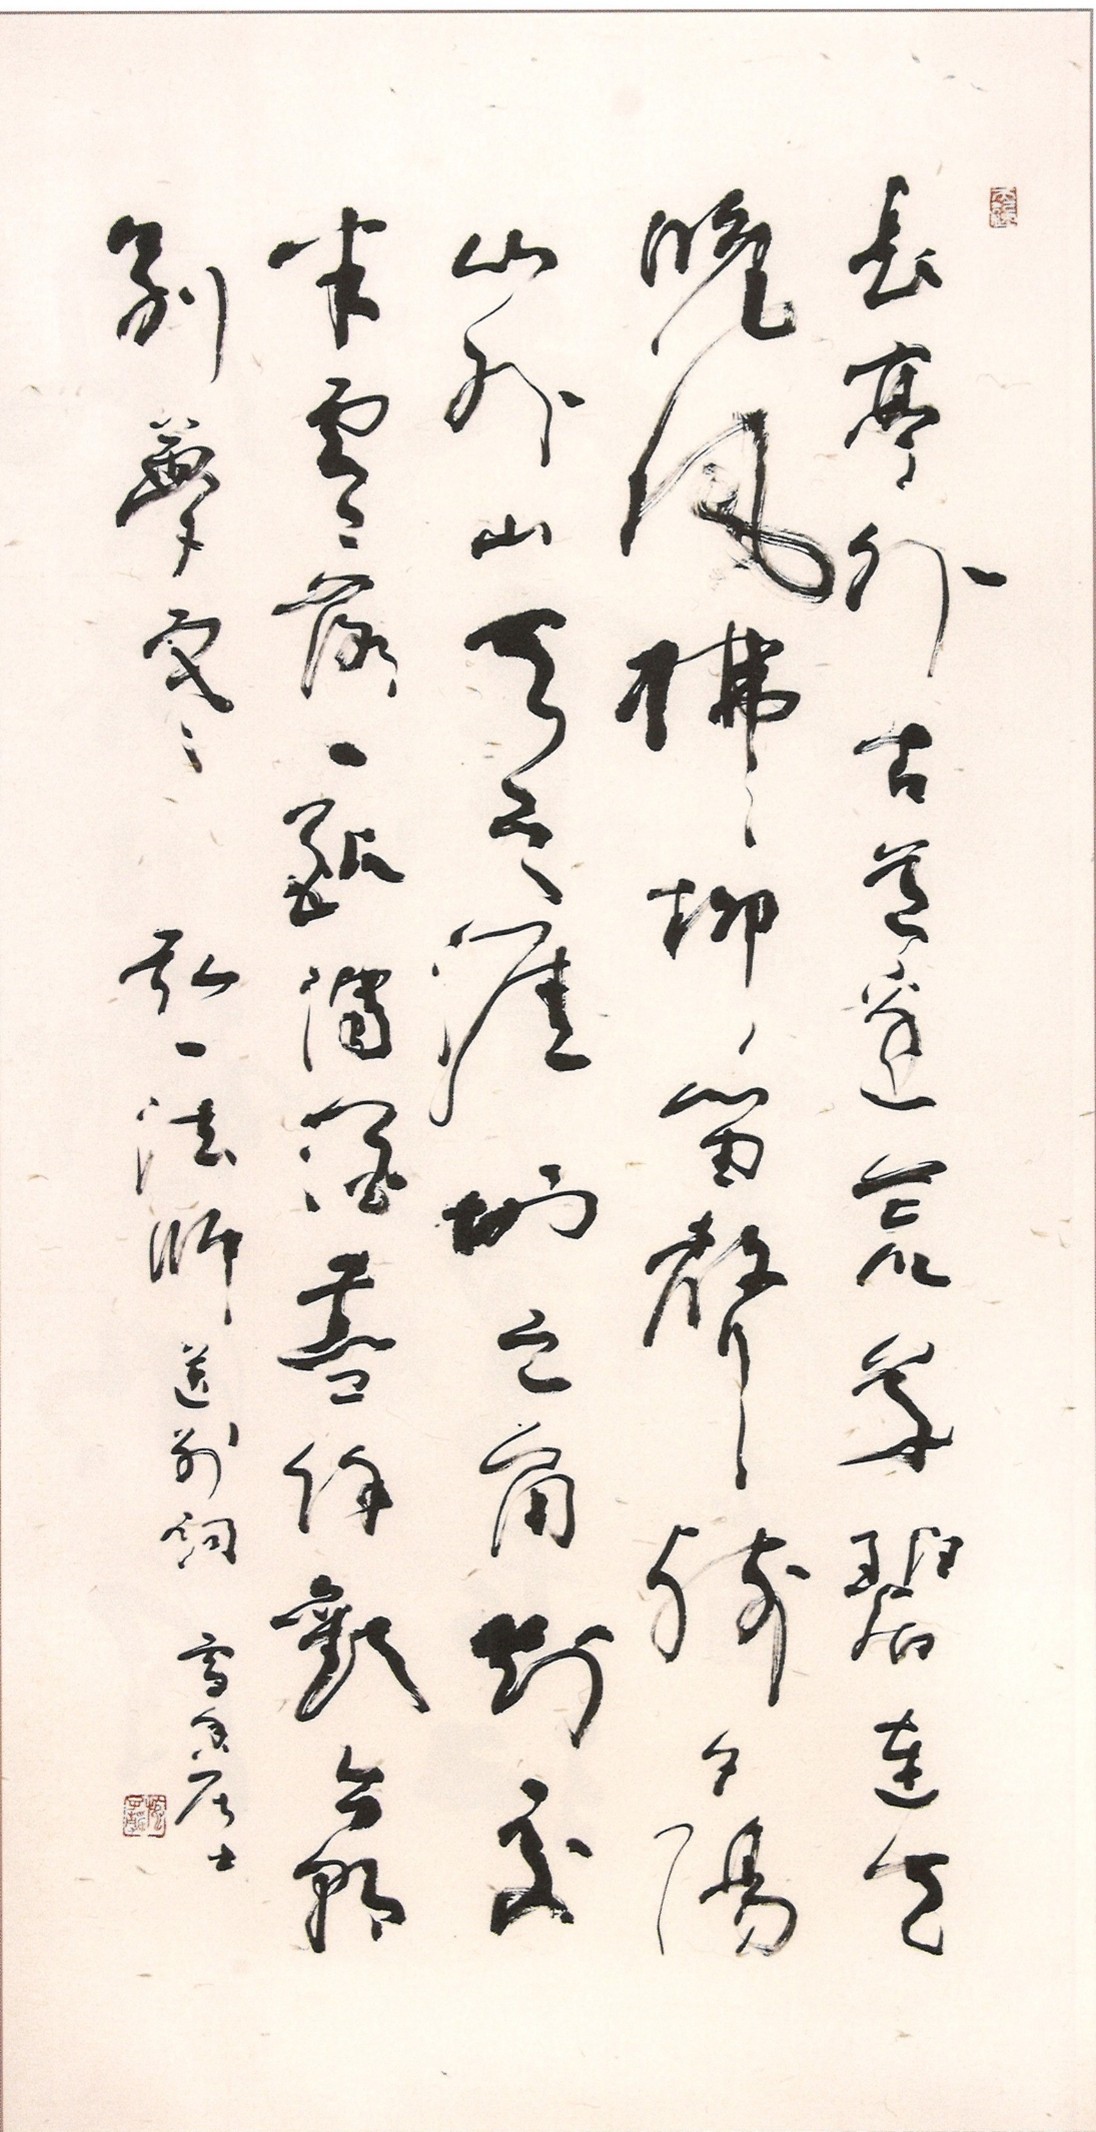 長亭外古道邊荒草碧連天
晚風拂柳笛聲殘夕陽
山外山天之涯地之角知交
半零落一瓢濁酒盡餘歡今
別夢寒 弘一法師送別詞 居士